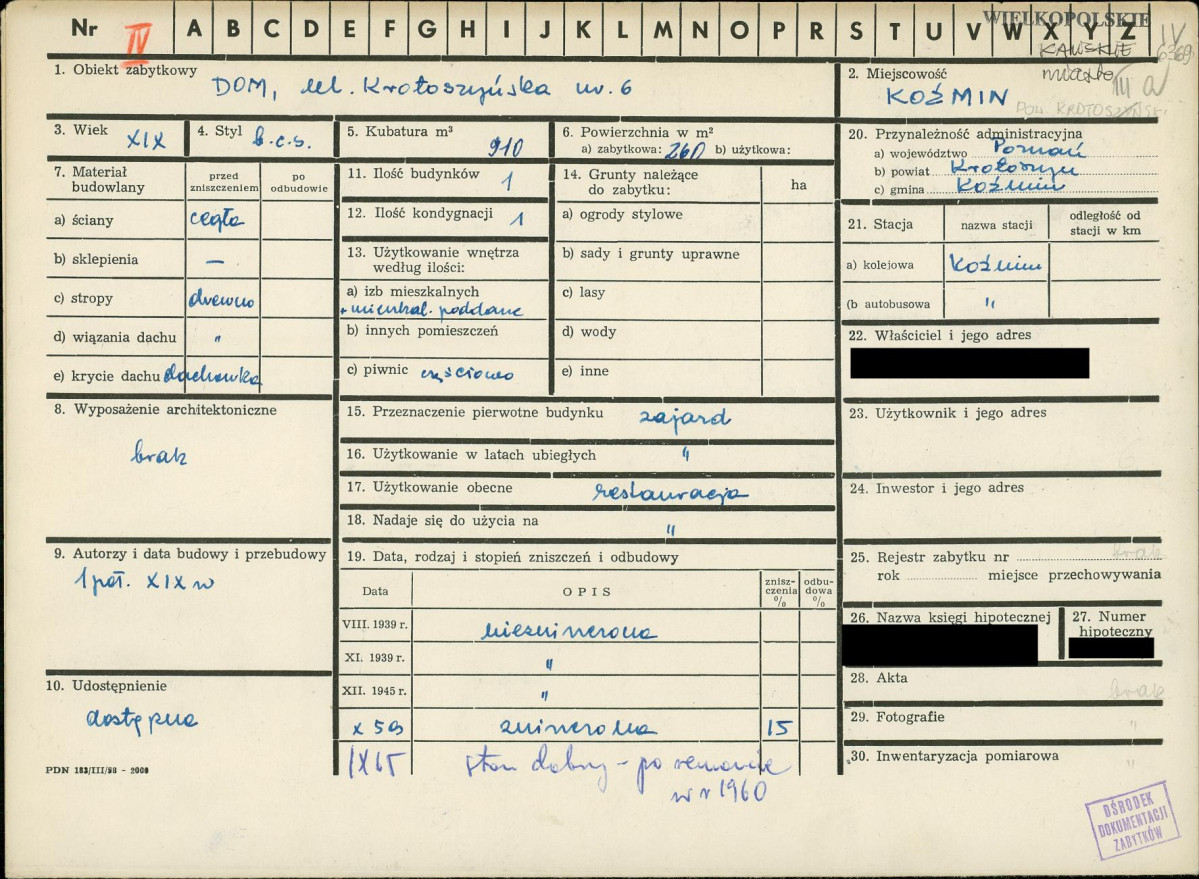 Nr IV A B C D E F G H I J K L M N O P R S T U V W X Y Z
WIELKOPOLSKIE
IV
6369
miasto
III a
1. Obiekt zabytkowy DOM, ul. Krotoszyńska nr. 6
2. Miejscowość
KOŹMIN
POW. KROTOSZYŃSKI
3. Wiek XIX
4. Styl b.c.s.
5. Kubatura m³ 910
6. Powierzchnia w m²
a) zabytkowa: 260 b) użytkowa:
7. Materiał budowlany
przed zniszczeniem
po odbudowie
a) ściany cegła
b) sklepienia —
c) stropy drewno
d) wiązania dachu "
e) krycie dachu dachówka
8. Wyposażenie architektoniczne
brak
9. Autorzy i data budowy i przebudowy
1 poł. XIX w
10. Udostępnienie
dostępna
PDN 183/III/58 - 2000
11. Ilość budynków 1
12. Ilość kondygnacji 1
13. Użytkowanie wnętrza
według ilości:
a) izb mieszkalnych
+ mieszkal. poddasze
b) innych pomieszczeń
c) piwnic częściowo
14. Grunty należące
do zabytku:
ha
a) ogrody stylowe
b) sady i grunty uprawne
c) lasy
d) wody
e) inne
15. Przeznaczenie pierwotne budynku zajazd
16. Użytkowanie w latach ubiegłych "
17. Użytkowanie obecne restauracja
18. Nadaje się do użycia na "
19. Data, rodzaj i stopień zniszczeń i odbudowy
Data
OPIS
znisz-
czenia
%
odbu-
dowa
%
VIII. 1939 r. niezniszczona
XI. 1939 r. "
XII. 1945 r. "
X 59 zniszczona 15
IX 65 stan dobry - po remoncie
w r 1960
20. Przynależność administracyjna
a) województwo Poznań
b) powiat Krotoszyn
c) gmina Koźmin
21. Stacja
nazwa stacji
odległość od
stacji w km
a) kolejowa Koźmin
(b autobusowa "
22. Właściciel i jego adres
23. Użytkownik i jego adres
24. Inwestor i jego adres
25. Rejestr zabytku nr brak
rok miejsce przechowywania
26. Nazwa księgi hipotecznej
27. Numer
hipoteczny
28. Akta brak
29. Fotografie "
30. Inwentaryzacja pomiarowa "
OŚRODEK
DOKUMENTACJI
ZABYTKÓW